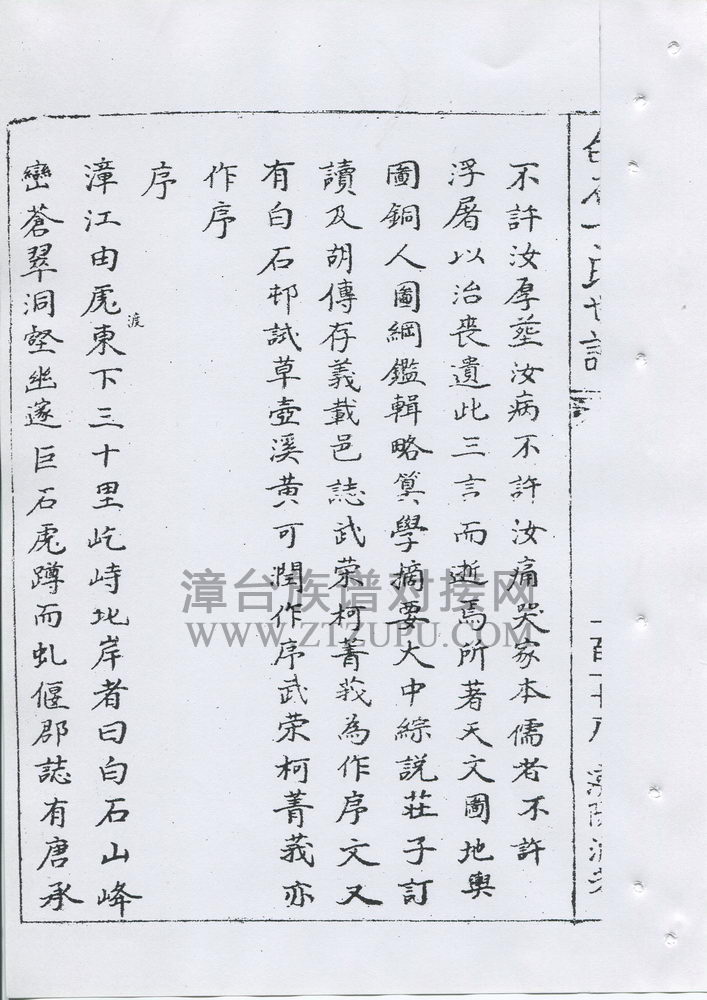 不許汝厚塟汝病不許汝痛哭家本儒者不許
浮屠以治喪遺此三言而逝焉所著天文圖地輿
圖銅人圖綱鑑輯略算學摘要大中綜説莊子訂
讀及胡傳存義載邑誌武荣柯菁莪為作序文又
有白石邨試草壺溪黄可潤作序武荣柯菁莪亦
作序
序
漳江由虎渡東下三十里屹峙北岸者曰白石山峰
巒蒼翠洞壑幽邃巨石虎蹲而虬偃郡誌有唐承
漳台族谱对接网
WWW.ZTZUPU.COM